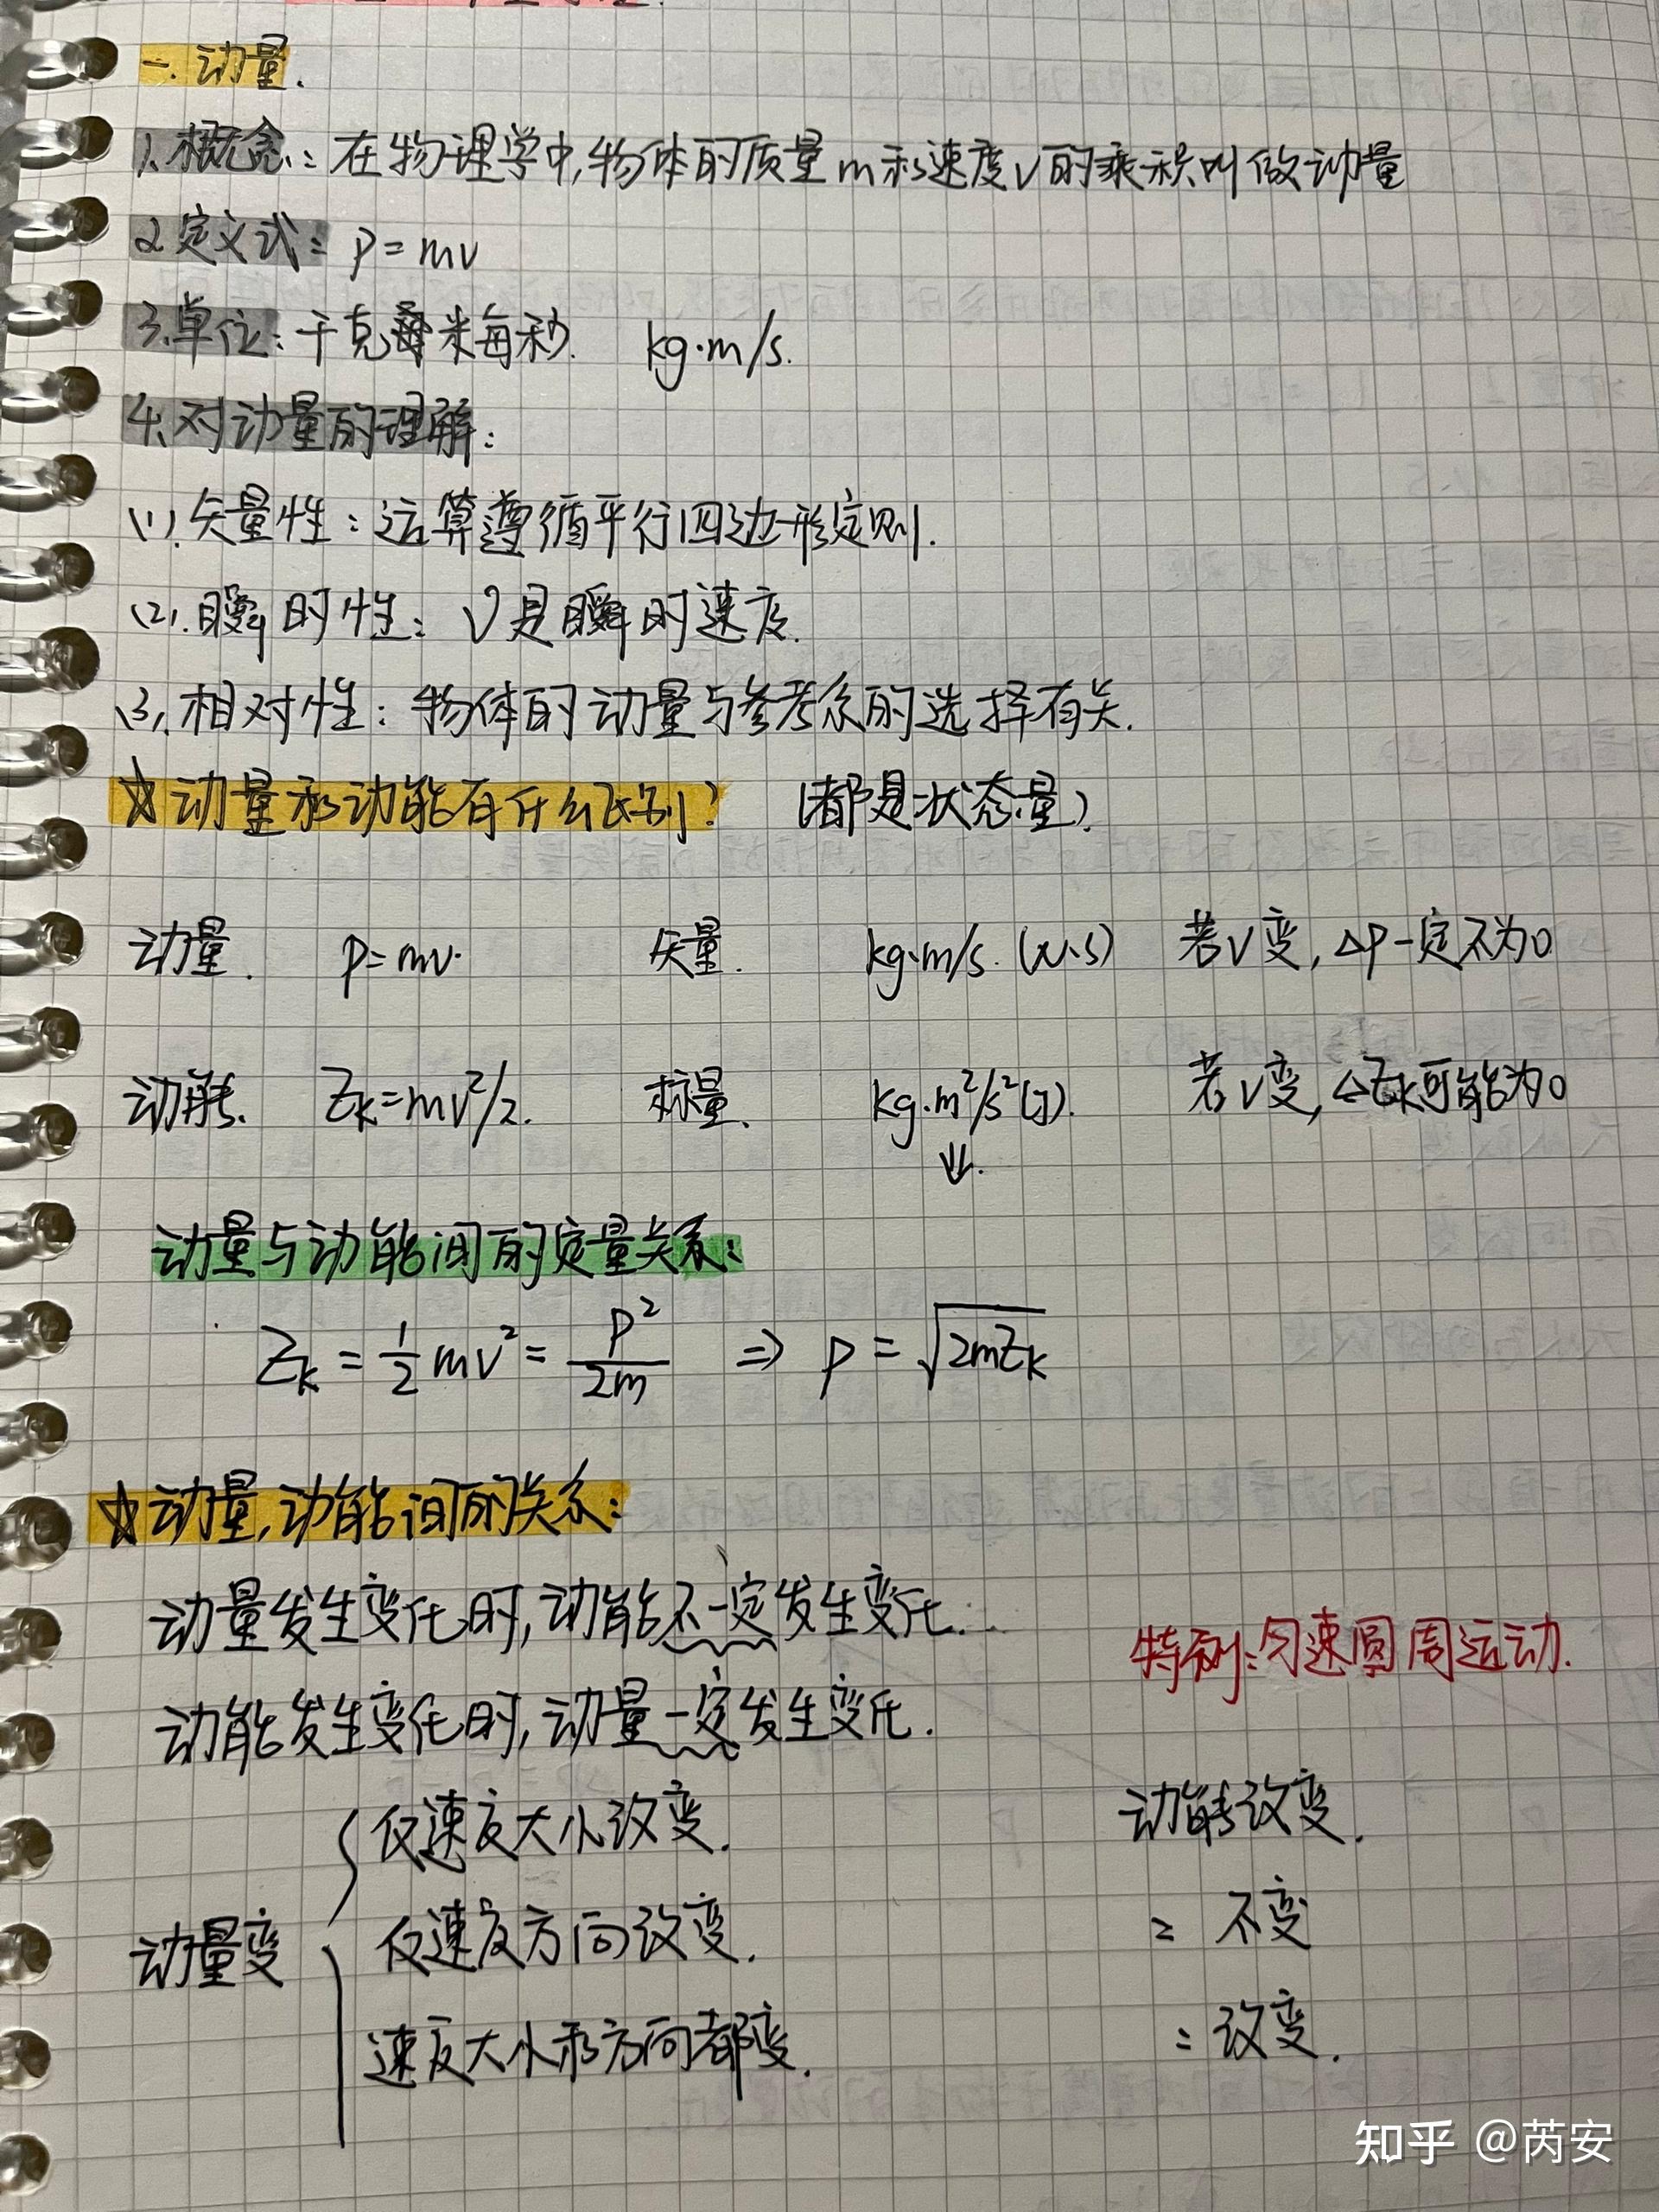 一.动量.
1.概念:在物理学中,物体的质量m和速度v的乘积叫做动量
2.定义式: p=mv
3.单位:千克米每秒. kg·m/s.
4.对动量的理解:
(1).矢量性:运算遵循平行四边形定则.
(2).瞬时性: v是瞬时速度.
(3).相对性:物体的动量与参考系的选择有关.
☆动量和动能有什么区别? (都是状态量)
动量. p=mv. 矢量. kg·m/s.(N·s) 若v变,Δp一定不为0
动能. Ek=mv²/2. 标量. kg·m²/s²(J). 若v变,ΔEk可能为0
↓.
动量与动能间的定量关系:
Ek = 1/2 mv² = p²/2m ⇒ p = √2mEk
☆动量,动能间的关系:
动量发生变化时,动能不一定发生变化. 特例:匀速圆周运动.
动能发生变化时,动量一定发生变化.
仅速度大小改变. 动能改变.
动量变 仅速度方向改变. = 不变
速度大小和方向都变. = 改变.
知乎 @芮安